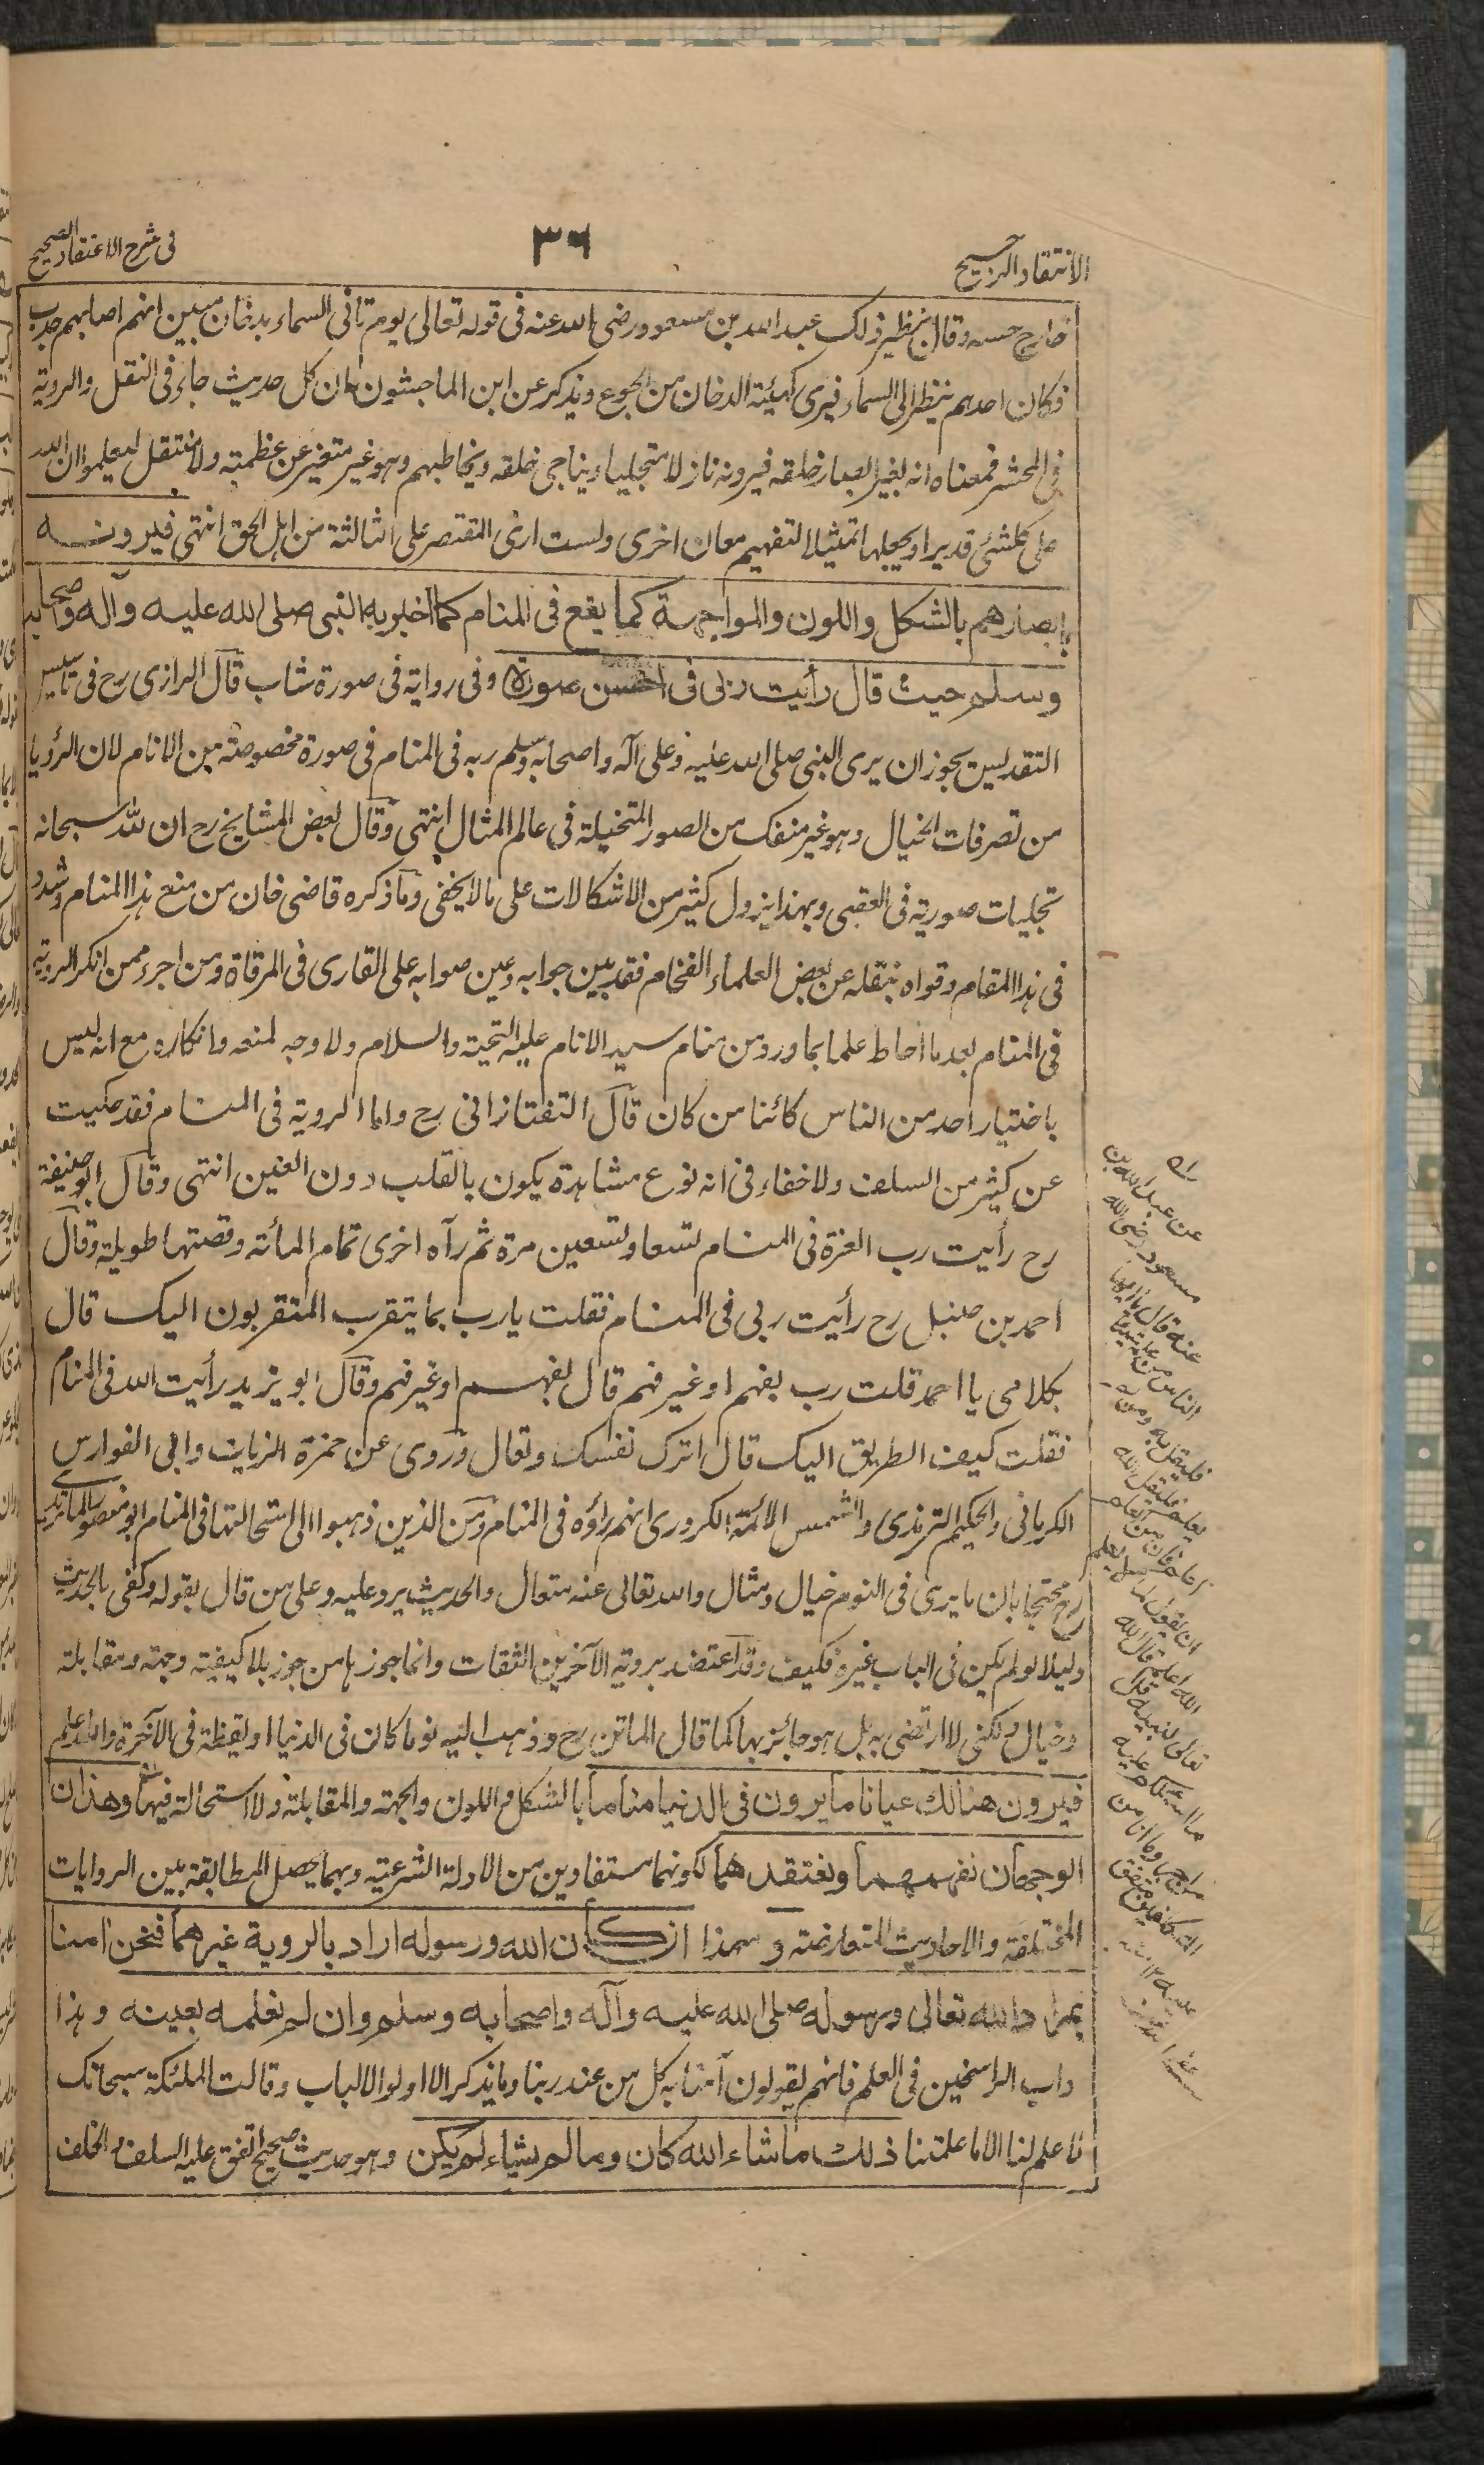 الانتقاد الرجيح
٣٦
فى شرح الاعتقاد الصحيح
خارج حسه وقال بنظير ذلك عبد الله بن مسعود رضى الله عنه فى قوله تعالى يوم تاتى السماء بدخان مبين انهم اصابهم جدب
فكان احدهم ينظر الى السماء فيرى كهيئة الدخان من الجوع ويذكر عن ابن الماجشون ان كل حديث جاء فى النقل والروية
فى المحشر فمعناه انه يغير ابصار خلقه فيرونه نازلا متجليا ويناجى خلقه ويخاطبهم وهو غير متغير عن عظمته ولا منتقل ليعلموا ان الله
على كل شئ قدير او يجعلها تمثيلا لتفهيم معان اخرى ولست ارى المقتصر على الثالثة من اهل الحق انتهى فيرونه
بابصارهم بالشكل واللون والمواجهة كما يقع فى المنام كما اخبر به النبى صلى الله عليه وآله وصحابه
وسلم حيث قال رأيت ربى فى احسن صورة وفى رواية فى صورة شاب قال الرازى رح فى تاسيس
التقديس يجوز ان يرى النبى صلى الله عليه وعلى آله واصحابه وسلم ربه فى المنام فى صورة مخصوصة من الانام لان الرؤيا
من تصرفات الخيال وهو غير منفك من الصور المتخيلة فى عالم المثال انتهى وقال بعض المشايخ رح ان لله سبحانه
تجليات صورية فى العقبى وبهذا يزول كثير من الاشكالات على ما لا يخفى وما ذكره قاضى خان من منع هذا المنام وشدد
فى هذا المقام وقواه بنقله عن بعض العلماء الفخام فقد بين جوابه وعين صوابه على القارى فى المرقاة ومن اجرء ممن انكر الروية
فى المنام بعد ما احاط علما بما ورد من منام سيد الانام عليه التحية والسلام ولا وجه لمنعه وانكاره مع انه ليس
باختيار احد من الناس كائنا من كان قال التفتازانى رح واما الروية فى المنام فقد حكيت
عن كثير من السلف ولا خفاء فى انه نوع مشاهدة يكون بالقلب دون العين انتهى وقال ابو حنيفة
رح رأيت رب العزة فى المنام تسعا وتسعين مرة ثم رآه اخرى تمام المأته وقصتها طويلة وقال
احمد بن حنبل رح رأيت ربى فى المنام فقلت يا رب بما يتقرب المتقربون اليك قال
بكلامى يا احمد قلت رب بفهم او غير فهم قال بفهم او غير فهم وقال ابو يزيد رأيت الله فى المنام
فقلت كيف الطريق اليك قال اترك نفسك وتعال وروى عن حمزة الزيات وابى الفوارس
الكرمانى والحكيم الترمذى والشمس الائمة الكرورى انهم رأوه فى المنام ومن الذين ذهبوا الى استحالتها فى المنام ابو منصور الماتريدى
رح محتجا بان ما يرى فى النوم خيال ومثال والله تعالى عنه متعال والحديث يرد عليه وعلى من قال بقوله وكفى بالحديث
دليلا لو لم يكن فى الباب غيره فكيف وقد اعتضد بروية الآخرين الثقات وانما جوزها من جوز بلا كيفية وجهة ومقابلة
وخيال ولكنى لا ارتضى به بل هو جائز بها كما قال الماتن رح وذهب اليه نوما كان فى الدنيا او يقظة فى الآخرة والله اعلم
فيرون هنالك عيانا ما يرون فى الدنيا مناما بالشكل واللون والجهة والمقابلة ولا استحالة فيها وهذان
الوجهان نفهمهما ونعتقدهما لكونهما مستفادين من الادلة الشرعية وبهما يحصل المطابقة بين الروايات
المختلفة والاحاديث المتعارضة وهذا ان كان الله ورسوله اراد بالروية غيرهما فنحن امنا
بمراد الله تعالى ورسوله صلى الله عليه وآله واصحابه وسلم وان لم نعلمه بعينه وهذا
داب الراسخين فى العلم فانهم يقولون آمنا به كل من عند ربنا وما يذكر الا اولوا الالباب وقالت الملئكة سبحانك
لا علم لنا الا ما علمتنا ذلك ما شاء الله كان وما لم يشاء لم يكن وهو حديث صحيح اتفق عليه السلف والخلف
عن عبد الله بن
مسعود رضى الله
عنه قال يا ايها
الناس من علم شيئا
فليقل به ومن لم
يعلم فليقل الله
اعلم فان من العلم
ان يقول لما لا يعلم
الله اعلم قال الله
تعالى لنبيه قل
ما اسئلكم عليه
من اجر وما انا من
المتكلفين متفق
عليه ١٢ منه